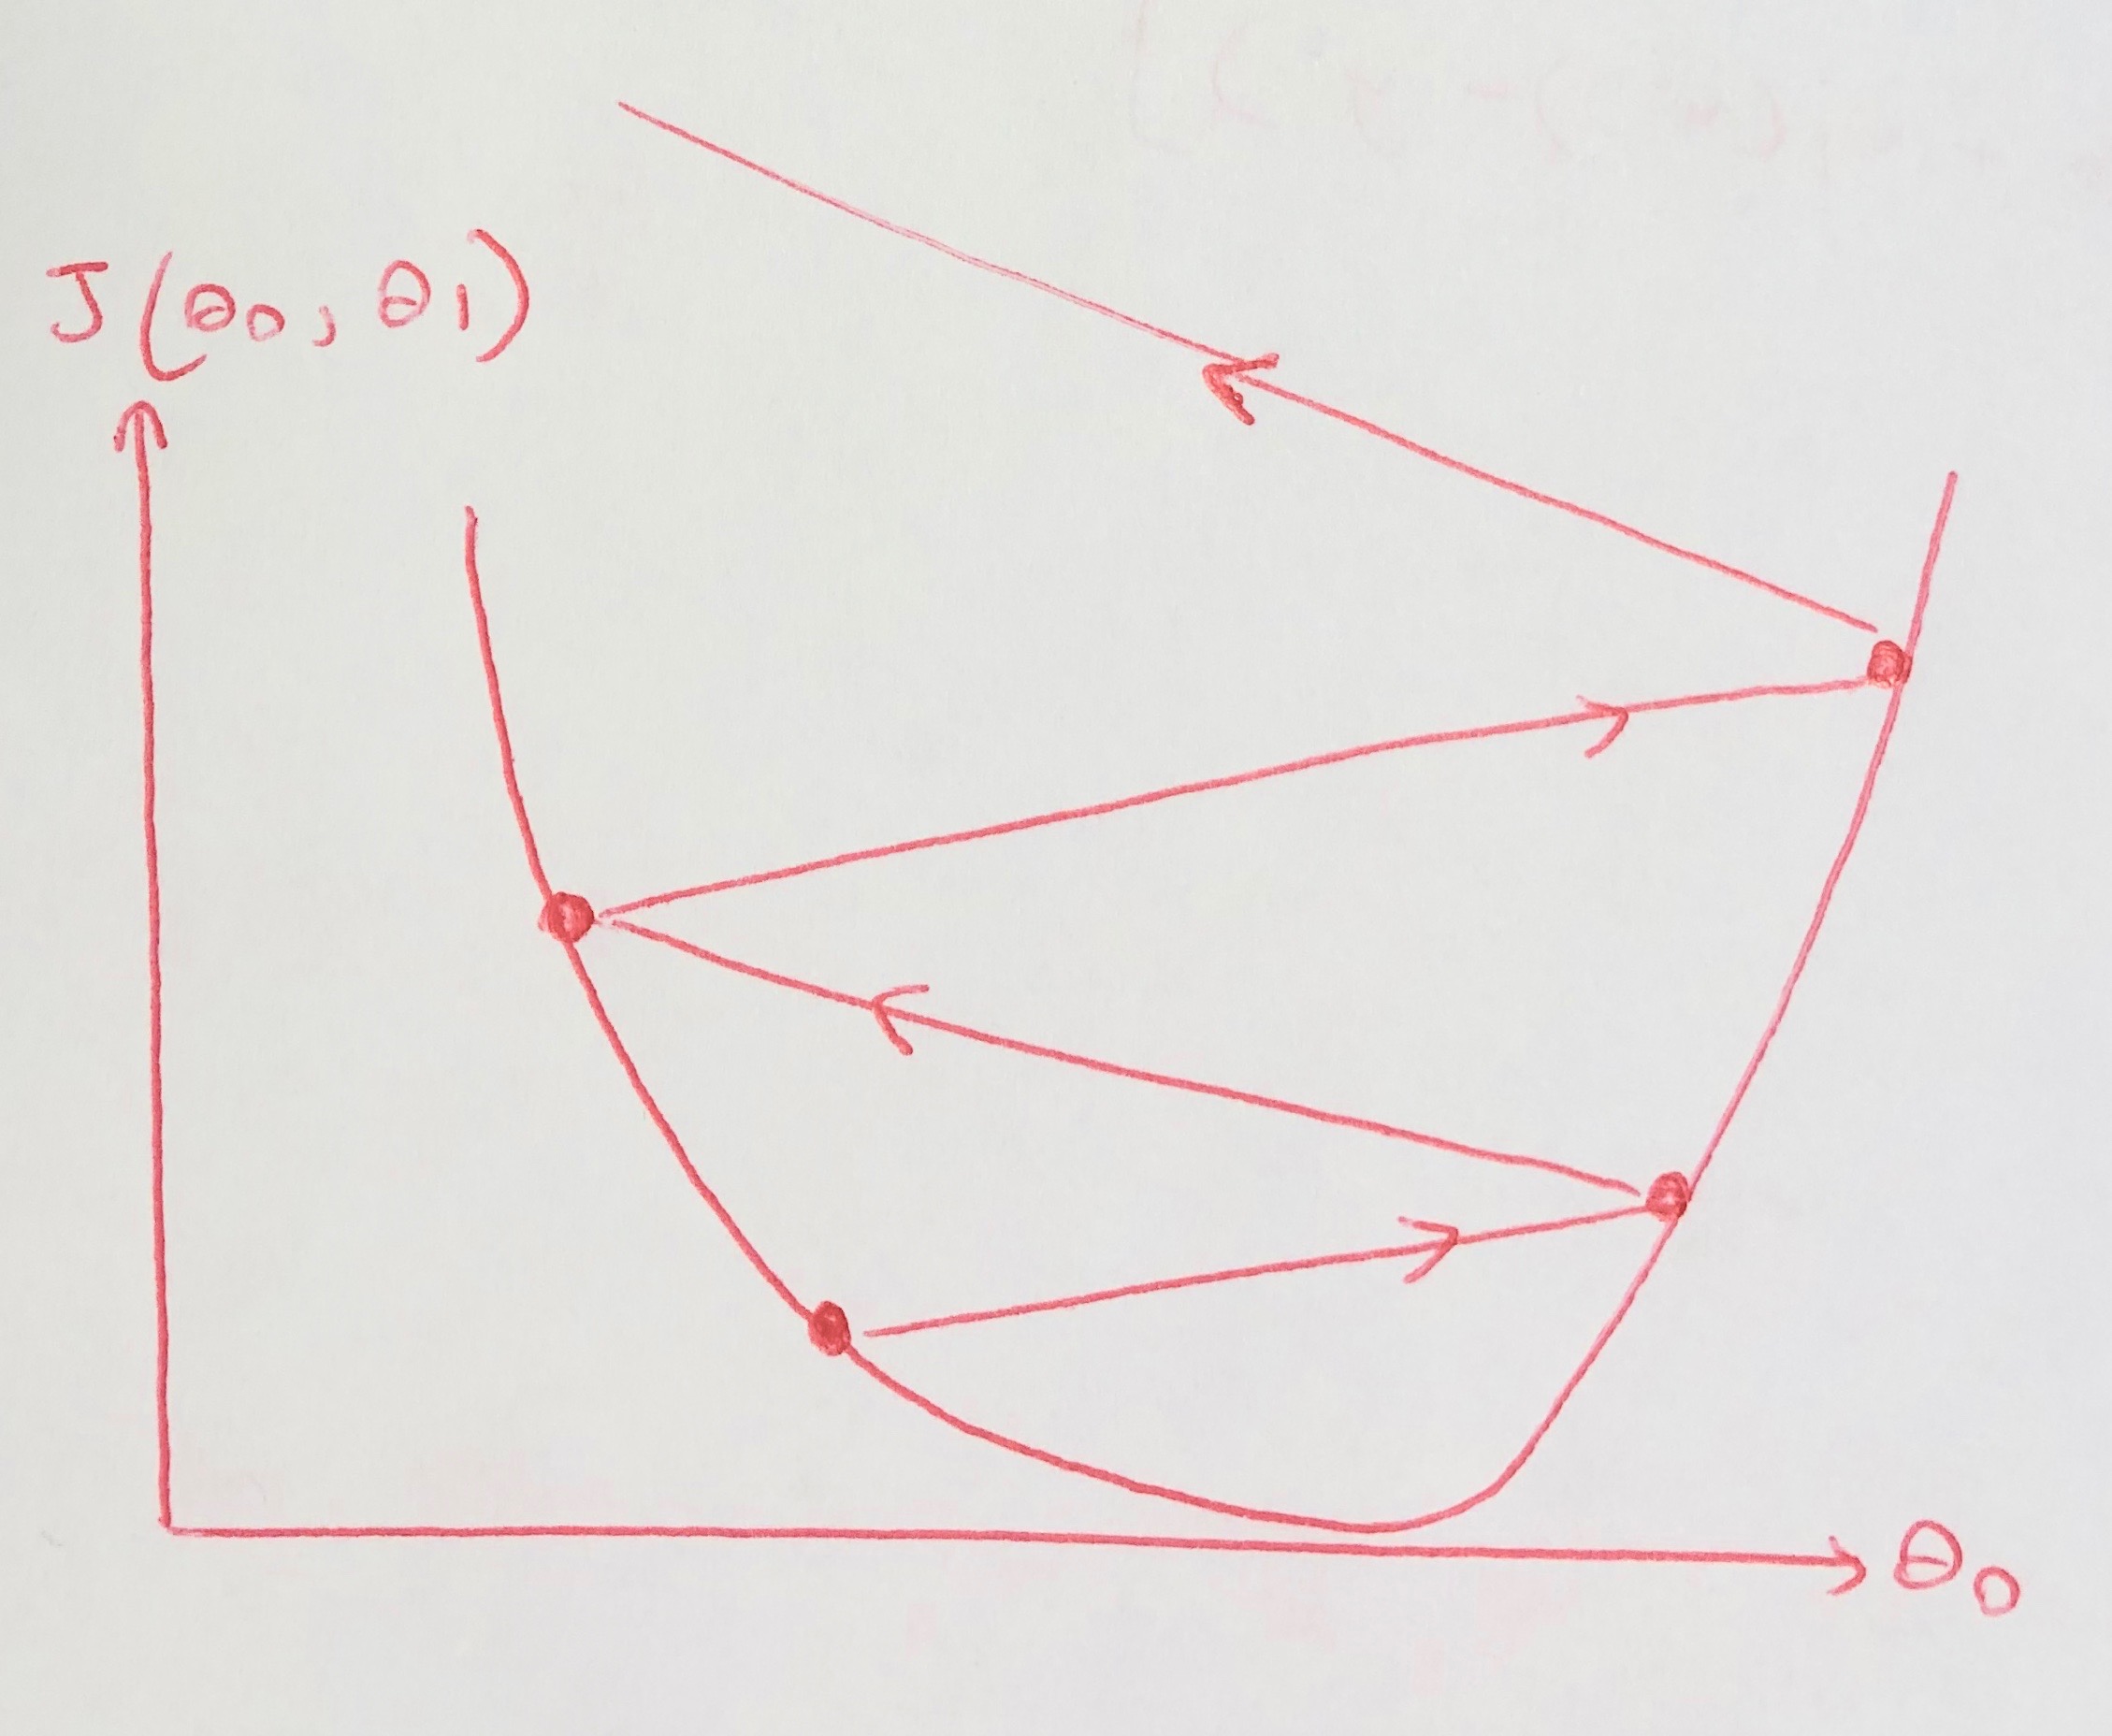 J(θ₀, θ₁)
θ₀